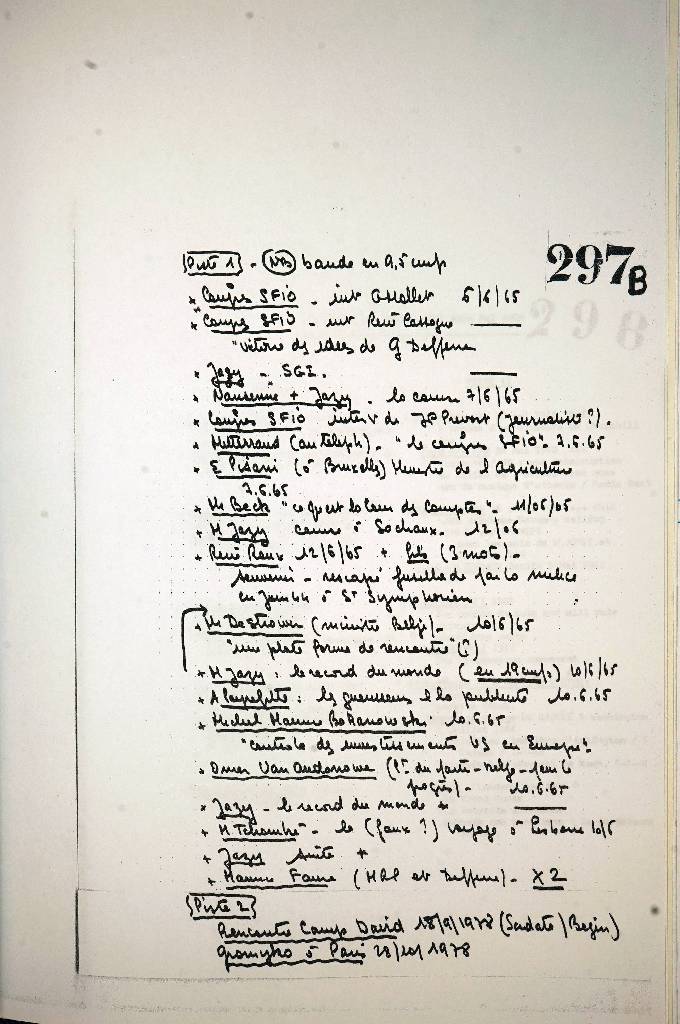 297B
Piste 1 - NB bande en 9,5 cm/s
* Congrès SFIO - int G Mollet 5/6/65
* Congrès SFIO - int René Cassagne ———
"victoire des idées de G Defferre
* Jazy - SGE. ———
* Nausenne + Jazy - la course 7/6/65
* Congrès SFIO interv de JP Prevost (journaliste ?).
* Mitterrand (au téléph) - "le congrès SFIO" 7.6.65
* E Pisani (à Bruxelles) Ministre de l Agriculture
7.6.65
* Mr Beck "ce qu'est la Cour des Comptes" - 11/06/65
* M Jazy course à Sochaux - 12/06
* René Roux 12/6/65 + (3 mots) -
souvenir - rescapé fusillade par la milice
en Juin 44 à St Symphorien
* Mr (ministre Belge) - 10/6/65
"une plate forme de rencontre" (?)
* M Jazy : le record du monde (en 19 cm/s) 10/6/65
* A Peyrefitte : les & la publicité 10.6.65
* Michel Maurice Bokanowski 10.6.65
"contrôle des investissements US en Europe"
* Omer Van Audenhove (Pt du parti - belge - pour le
progrès) - 10.6.65
* Jazy - le record du monde * ———
* M Tchombé - le (faux ?) voyage à Lisbonne 10/6
* Jazy suite *
* Maurice Faure (MRP et Defferre) - X2
Piste 2
Rencontre Camp David 18/9/1978 (Sadate / Begin)
Gromyko à Paris 28/10/1978